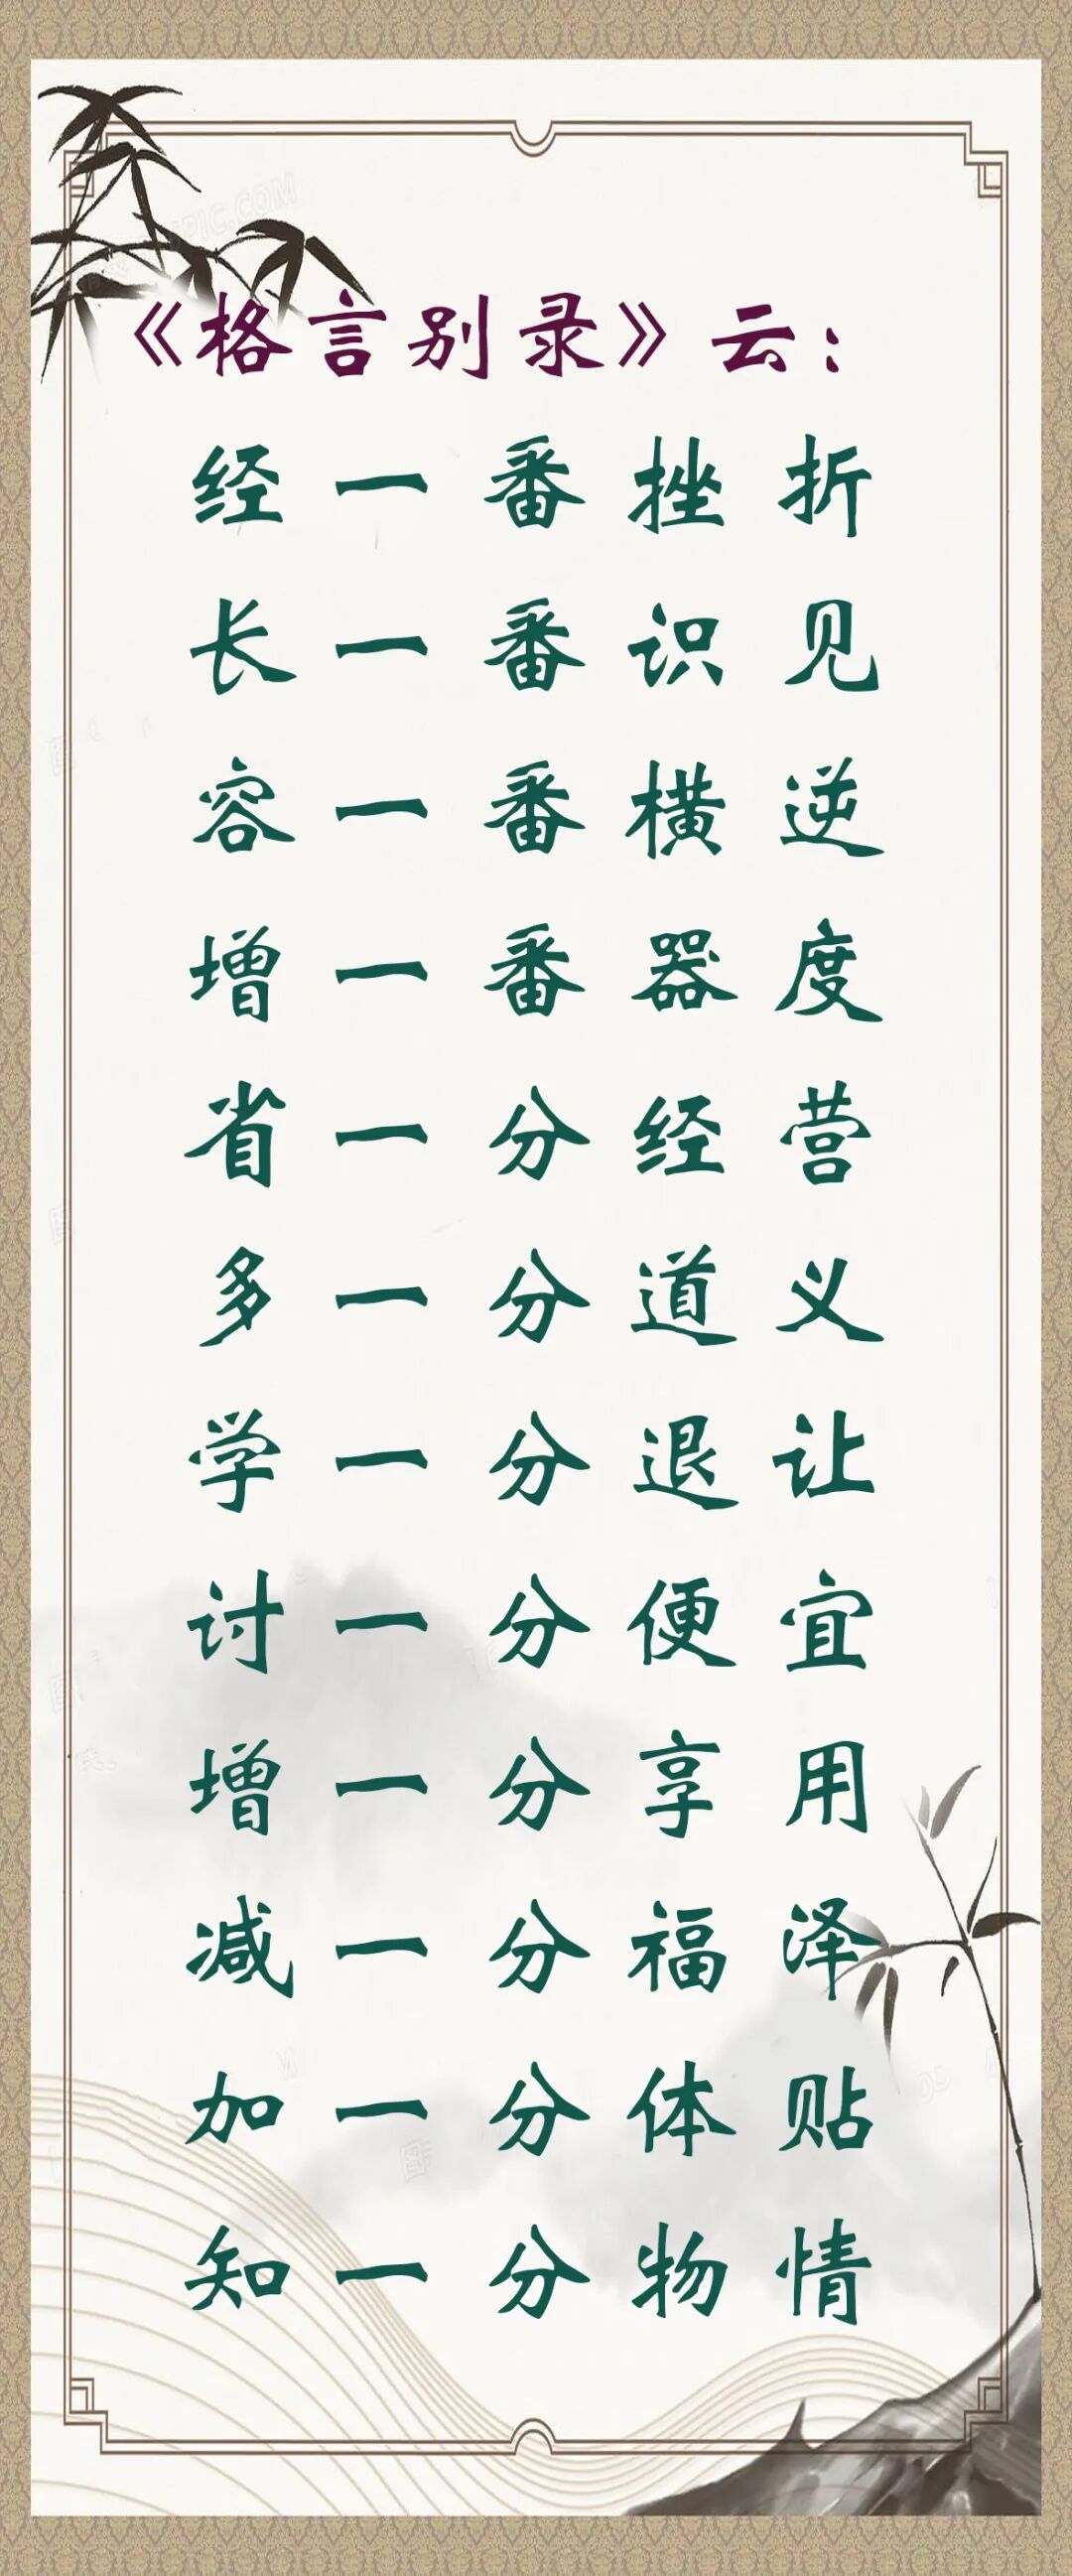 《格言别录》云：
经一番挫折
长一番识见
容一番横逆
增一番器度
省一分经营
多一分道义
学一分退让
讨一分便宜
增一分享用
减一分福泽
加一分体贴
知一分物情